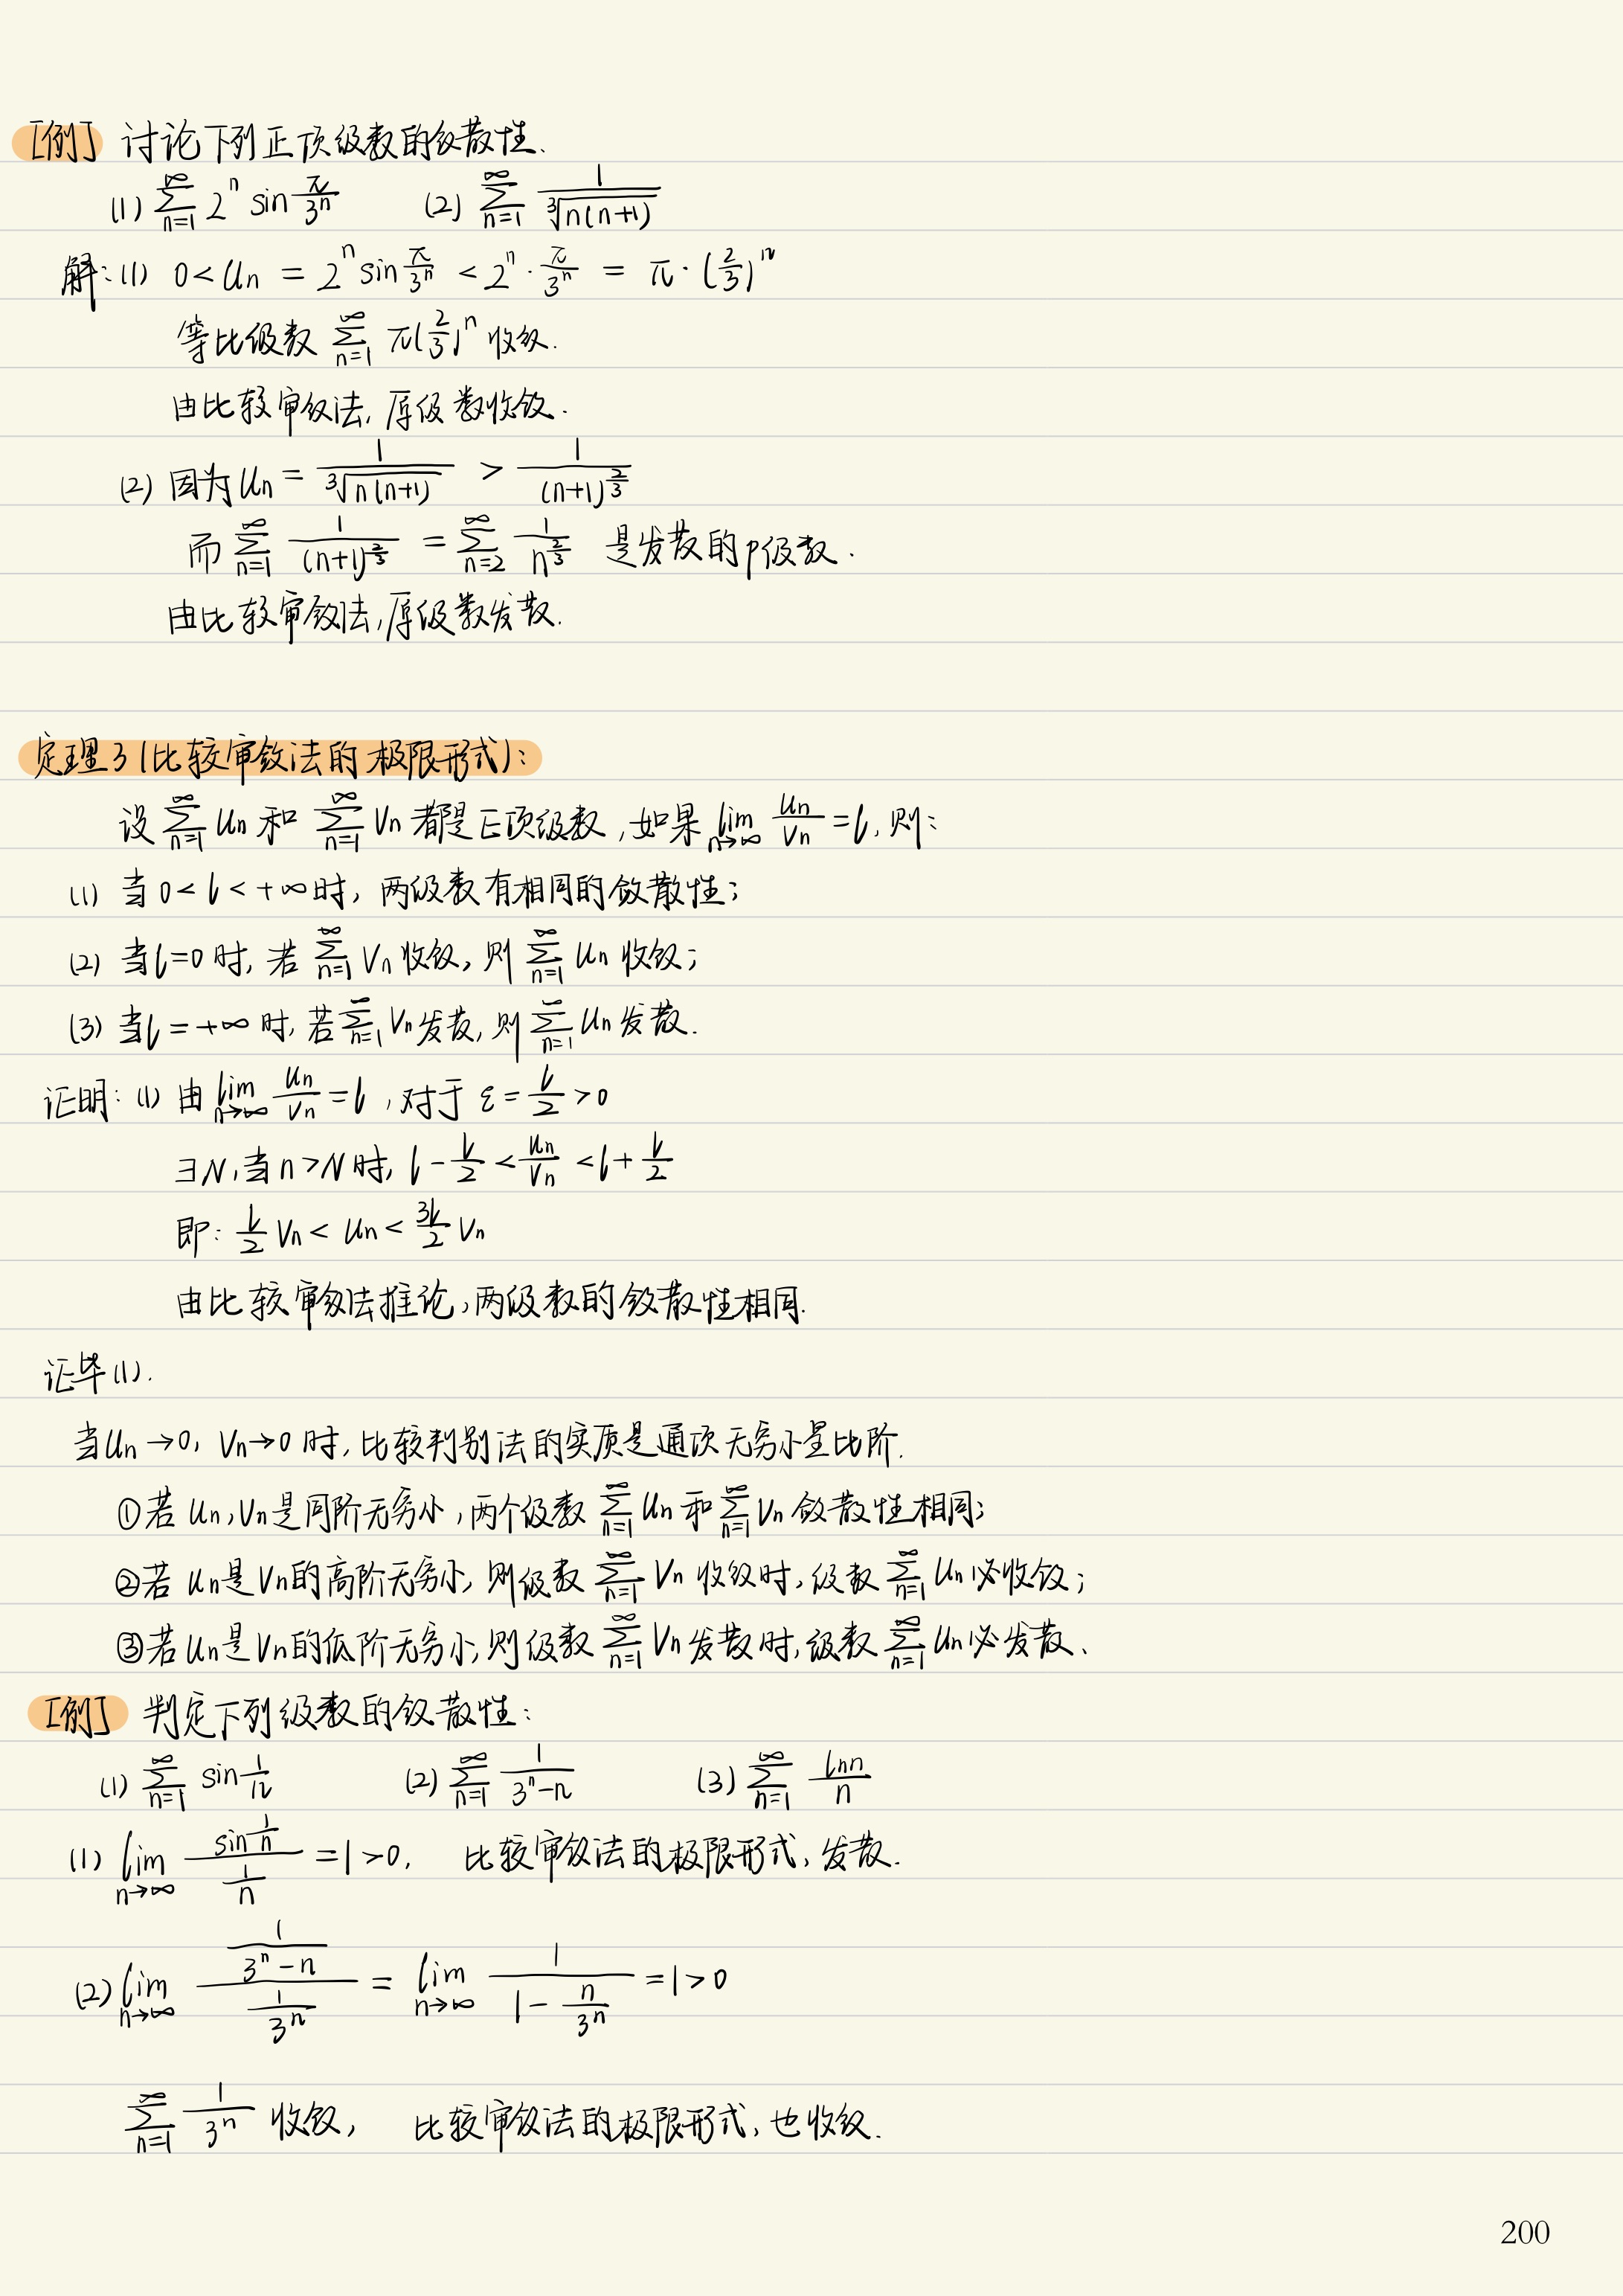 [例] 讨论下列正项级数的敛散性.
(1) $\sum_{n=1}^{\infty} 2^n \sin\frac{\pi}{3^n}$ (2) $\sum_{n=1}^{\infty} \frac{1}{\sqrt[3]{n(n+1)}}$
解:(1) $0 < u_n = 2^n \sin\frac{\pi}{3^n} < 2^n \cdot \frac{\pi}{3^n} = \pi \cdot (\frac{2}{3})^n$
等比级数 $\sum_{n=1}^{\infty} \pi(\frac{2}{3})^n$ 收敛.
由比较审敛法, 原级数收敛.
(2) 因为 $u_n = \frac{1}{\sqrt[3]{n(n+1)}} > \frac{1}{(n+1)^{\frac{2}{3}}}$
而 $\sum_{n=1}^{\infty} \frac{1}{(n+1)^{\frac{2}{3}}} = \sum_{n=2}^{\infty} \frac{1}{n^{\frac{2}{3}}}$ 是发散的p级数.
由比较审敛法,原级数发散.
定理3(比较审敛法的极限形式):
设 $\sum_{n=1}^{\infty} u_n$ 和 $\sum_{n=1}^{\infty} v_n$ 都是正项级数,如果 $\lim_{n\to\infty} \frac{u_n}{v_n} = l$, 则:
(1) 当 $0 < l < +\infty$ 时, 两级数有相同的敛散性;
(2) 当 $l=0$ 时, 若 $\sum_{n=1}^{\infty} v_n$ 收敛, 则 $\sum_{n=1}^{\infty} u_n$ 收敛;
(3) 当 $l=+\infty$ 时, 若 $\sum_{n=1}^{\infty} v_n$ 发散, 则 $\sum_{n=1}^{\infty} u_n$ 发散.
证明: (1) 由 $\lim_{n\to\infty} \frac{u_n}{v_n} = l$ ,对于 $\varepsilon = \frac{l}{2} > 0$
$\exists N$,当 $n > N$ 时, $l - \frac{l}{2} < \frac{u_n}{v_n} < l + \frac{l}{2}$
即: $\frac{l}{2} v_n < u_n < \frac{3l}{2} v_n$
由比较审敛法推论,两级数的敛散性相同.
证毕(1).
当 $u_n \to 0$, $v_n \to 0$ 时, 比较判别法的实质是通项无穷小量比阶.
①若 $u_n, v_n$ 是同阶无穷小,两个级数 $\sum_{n=1}^{\infty} u_n$ 和 $\sum_{n=1}^{\infty} v_n$ 敛散性相同;
②若 $u_n$ 是 $v_n$ 的高阶无穷小, 则级数 $\sum_{n=1}^{\infty} v_n$ 收敛时, 级数 $\sum_{n=1}^{\infty} u_n$ 必收敛;
③若 $u_n$ 是 $v_n$ 的低阶无穷小, 则级数 $\sum_{n=1}^{\infty} v_n$ 发散时, 级数 $\sum_{n=1}^{\infty} u_n$ 必发散.
[例] 判定下列级数的敛散性:
(1) $\sum_{n=1}^{\infty} \sin\frac{1}{n}$ (2) $\sum_{n=1}^{\infty} \frac{1}{3^n-n}$ (3) $\sum_{n=1}^{\infty} \frac{\ln n}{n}$
(1) $\lim_{n\to\infty} \frac{\sin\frac{1}{n}}{\frac{1}{n}} = 1 > 0$, 比较审敛法的极限形式, 发散.
(2) $\lim_{n\to\infty} \frac{\frac{1}{3^n-n}}{\frac{1}{3^n}} = \lim_{n\to\infty} \frac{1}{1-\frac{n}{3^n}} = 1 > 0$
$\sum_{n=1}^{\infty} \frac{1}{3^n}$ 收敛, 比较审敛法的极限形式, 也收敛.
200